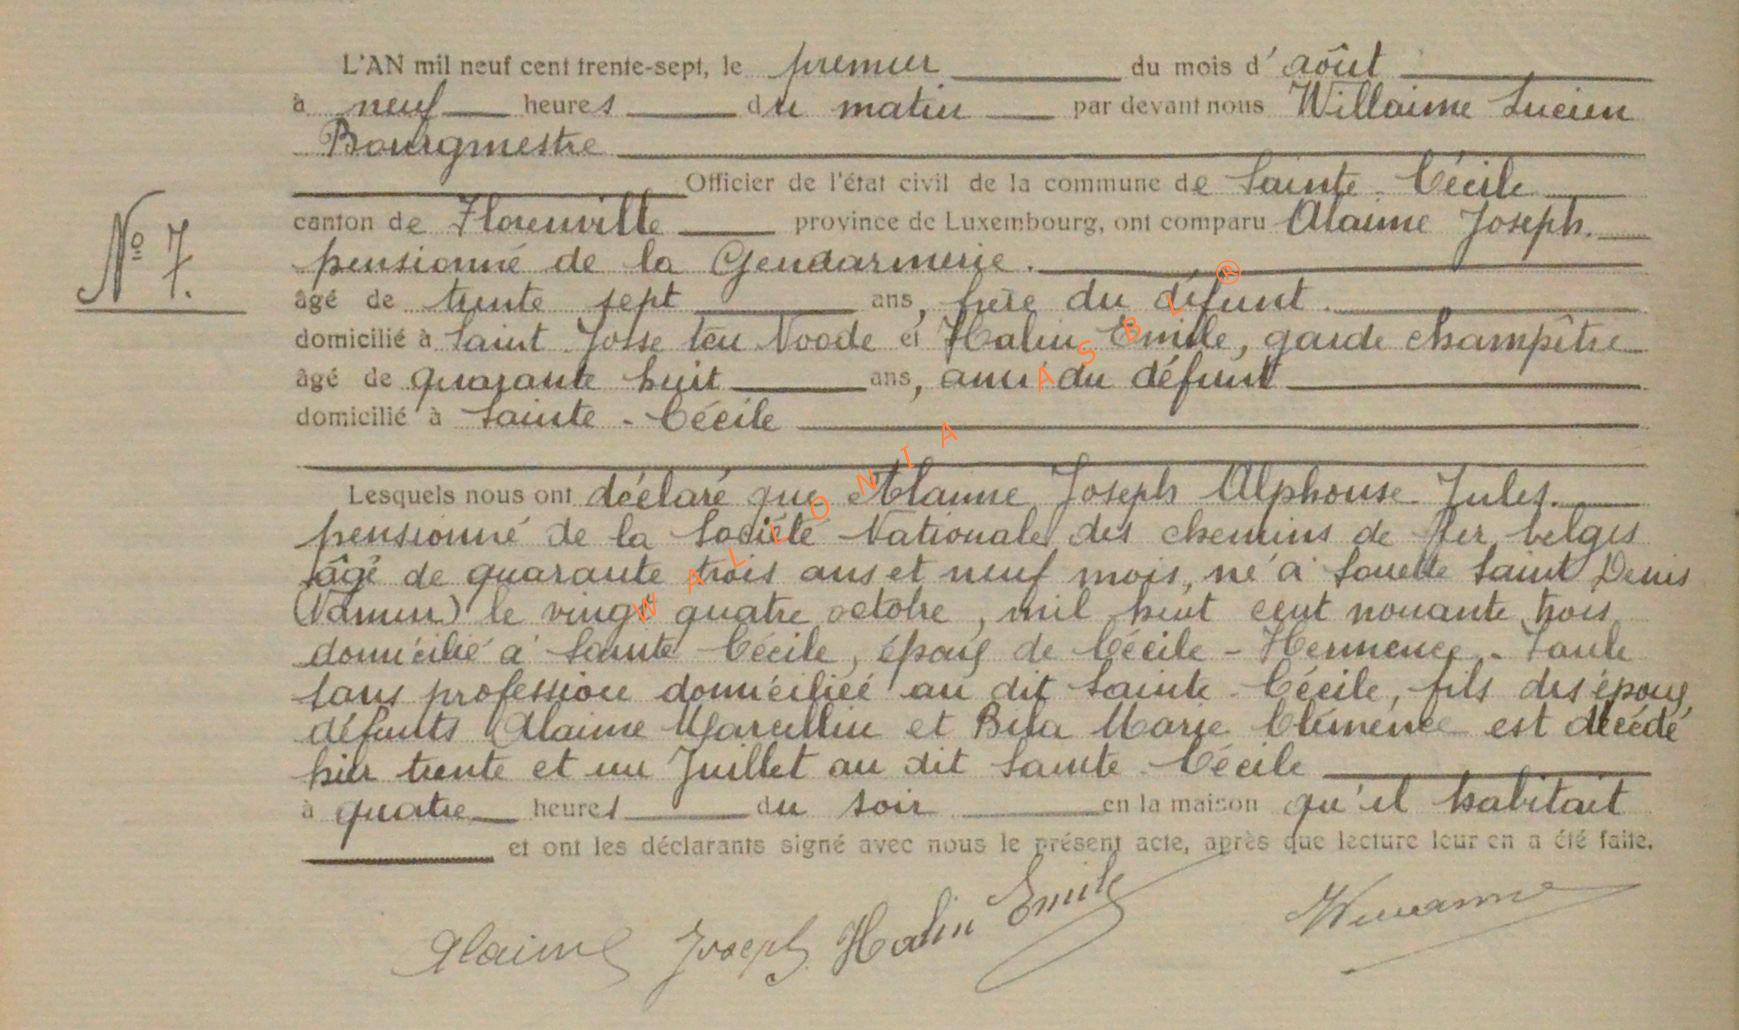 L'AN mil neuf cent trente-sept, le premier du mois d' août
à neuf heures du matin par devant nous Willaime Lucien
Bourgmestre
Officier de l'état civil de la commune de Sainte-Cécile
canton de Florenville province de Luxembourg, ont comparu Alaime Joseph.
N° 7.
pensionné de la Gendarmerie.
âgé de trente sept ans, frère du défunt.
domicilié à Saint Josse ten Noode et Halin Emile, garde champêtre
âgé de quarante huit ans, ami du défunt
domicilié à Sainte-Cécile
Lesquels nous ont déclaré que Alaime Joseph Alphonse Jules.
pensionné de la Société Nationale des chemins de fer belges
âgé de quarante trois ans et neuf mois, né à Louette Saint Denis
(Namur) le vingt quatre octobre, mil huit cent nonante trois
domicilié à Sainte Cécile, époux de Cécile-Hermence-Saule
sans profession domiciliée au dit Sainte-Cécile, fils des époux
défunts Alaime Marcellin et Marie Clémence est décédé
hier trente et un Juillet au dit Sainte-Cécile
à quatre heures du soir en la maison qu'il habitait
et ont les déclarants signé avec nous le présent acte, après que lecture leur en a été faite.
Alaime Joseph Halin Emile
WALLONIA ASBL ®